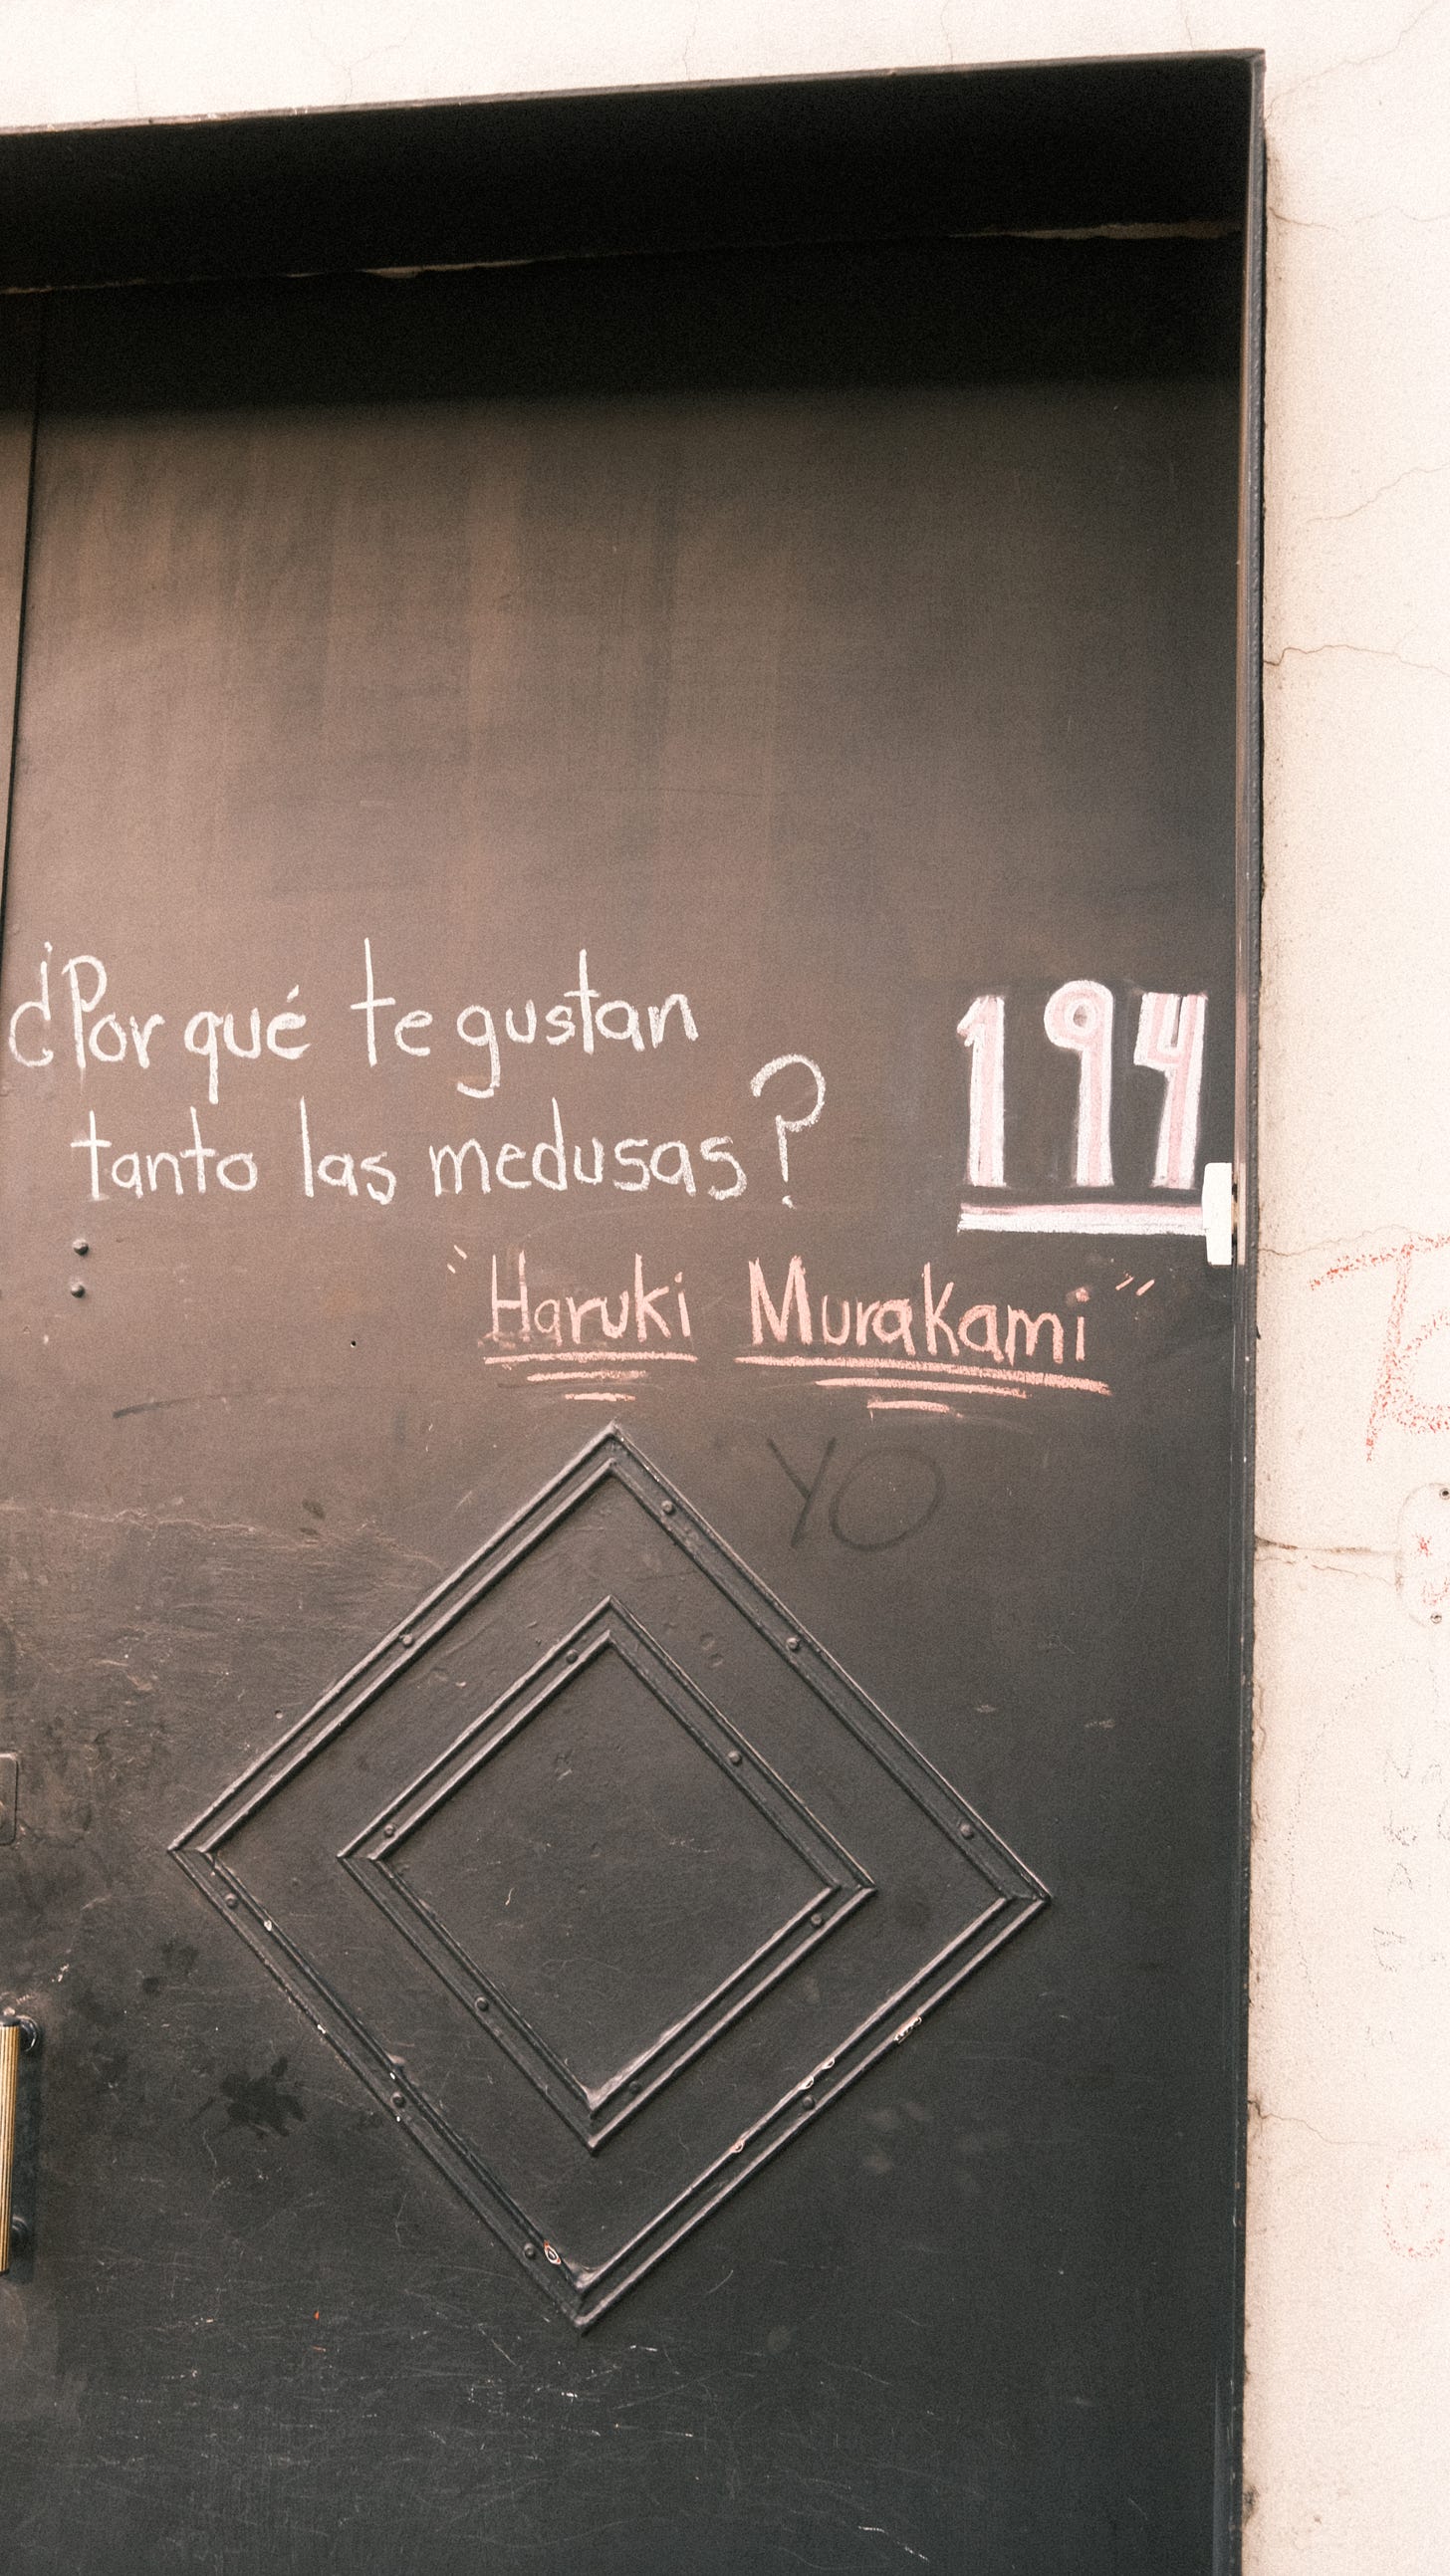 ¿Por qué te gustan
tanto las medusas?
194
"Haruki Murakami"
YO